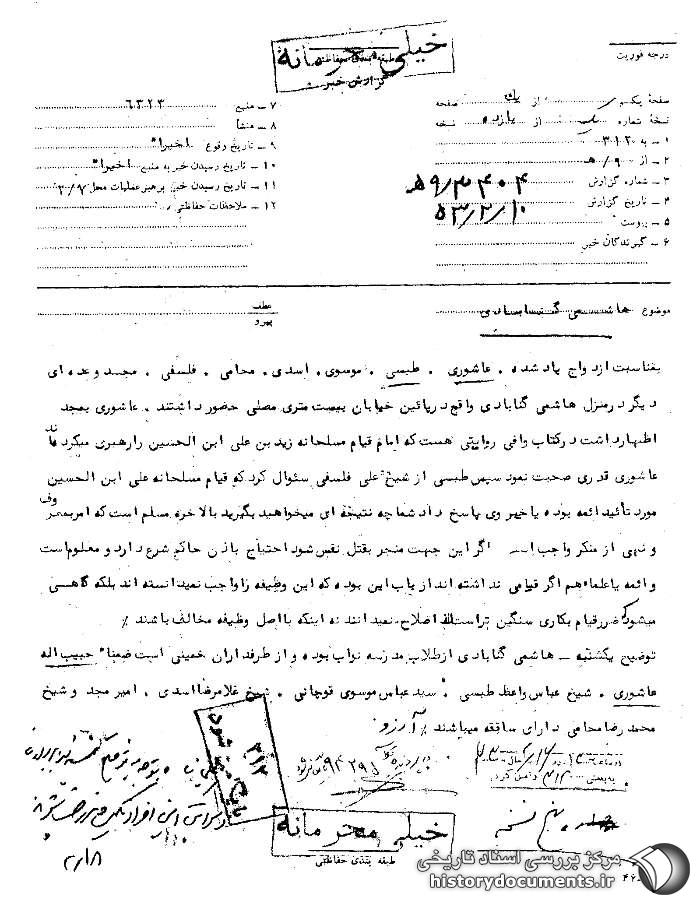 خیلی محرمانه
طبقه بندی حفاظتی
گزارش خبر
درجه فوریت
صفحه یک از یک صفحه
نسخه شماره از یازده نسخه
۱ - به ۳۱۲۰
۲ - از ۹ / ه
۳ - شماره گزارش ۹/۳۴۰۴ ه
۴ - تاریخ گزارش ۵۳/۲/۱۰
۵ - پیوست
۶ - گیرندگان خبر
۷ - منبع ۶۳۲۳
۸ - منشأ
۹ - تاریخ وقوع اخیرا"
۱۰ - تاریخ رسیدن خبر به منبع اخیرا"
۱۱ - تاریخ رسیدن خبر برهبر عملیات محل ۲/۷
۱۲ - ملاحظات حفاظتی
موضوع هاشمی گنابادی
عطف
پیرو
بمناسبت ازدواج یاد شده ، عاشوری ، طبسی ، موسوی ، اسدی ، محامی ، فلسفی ، مجد و عده ای
دیگر در منزل هاشمی گنابادی واقع در پائین خیابان بیست متری مصلی حضور داشتند ، عاشوری بمجد
اظهار داشت در کتاب وافی روایتی هست که امام قیام مسلحانه زید بن علی ابن الحسین را رهبری میکرده اند
عاشوری قدری صحبت نمود سپس طبسی از شیخ علی فلسفی سئوال کرد که قیام مسلحانه علی ابن الحسین
مورد تأئید ائمه بوده یا خیر وی پاسخ داد شما چه نتیجه ای میخواهید بگیرید بالاخره مسلم است که امر بمعروف
و نهی از منکر واجب است اگر این جهت منجر بقتل نفس شود احتیاج باذن حاکم شرع دارد و معلوم است
و ائمه یا علماء هم اگر قیامی نداشته اند از باب این بوده که این وظیفه را واجب نمیدانسته اند بلکه گاهی
میشود که ضرر قیام بکاری سنگین تر است اصلاح نمیدانند نه اینکه با اصل وظیفه مخالف باشند ٪
توضیح یکشنبه - هاشمی گنابادی از طلاب مدرسه نواب بوده و از طرفداران خمینی است ضمنا" حبیب اله
عاشوری ، شیخ عباس واعظ طبسی ، سید عباس موسوی قوچانی ، شیخ غلامرضا اسدی ، امیر مجد و شیخ
محمد رضا محامی دارای سابقه میباشند ٪ آرزو
۳۱۲
بایگانی شود
۲/۱۸
خیلی محرمانه
طبقه بندی حفاظتی
مرکز بررسی اسناد تاریخی
historydocuments.ir